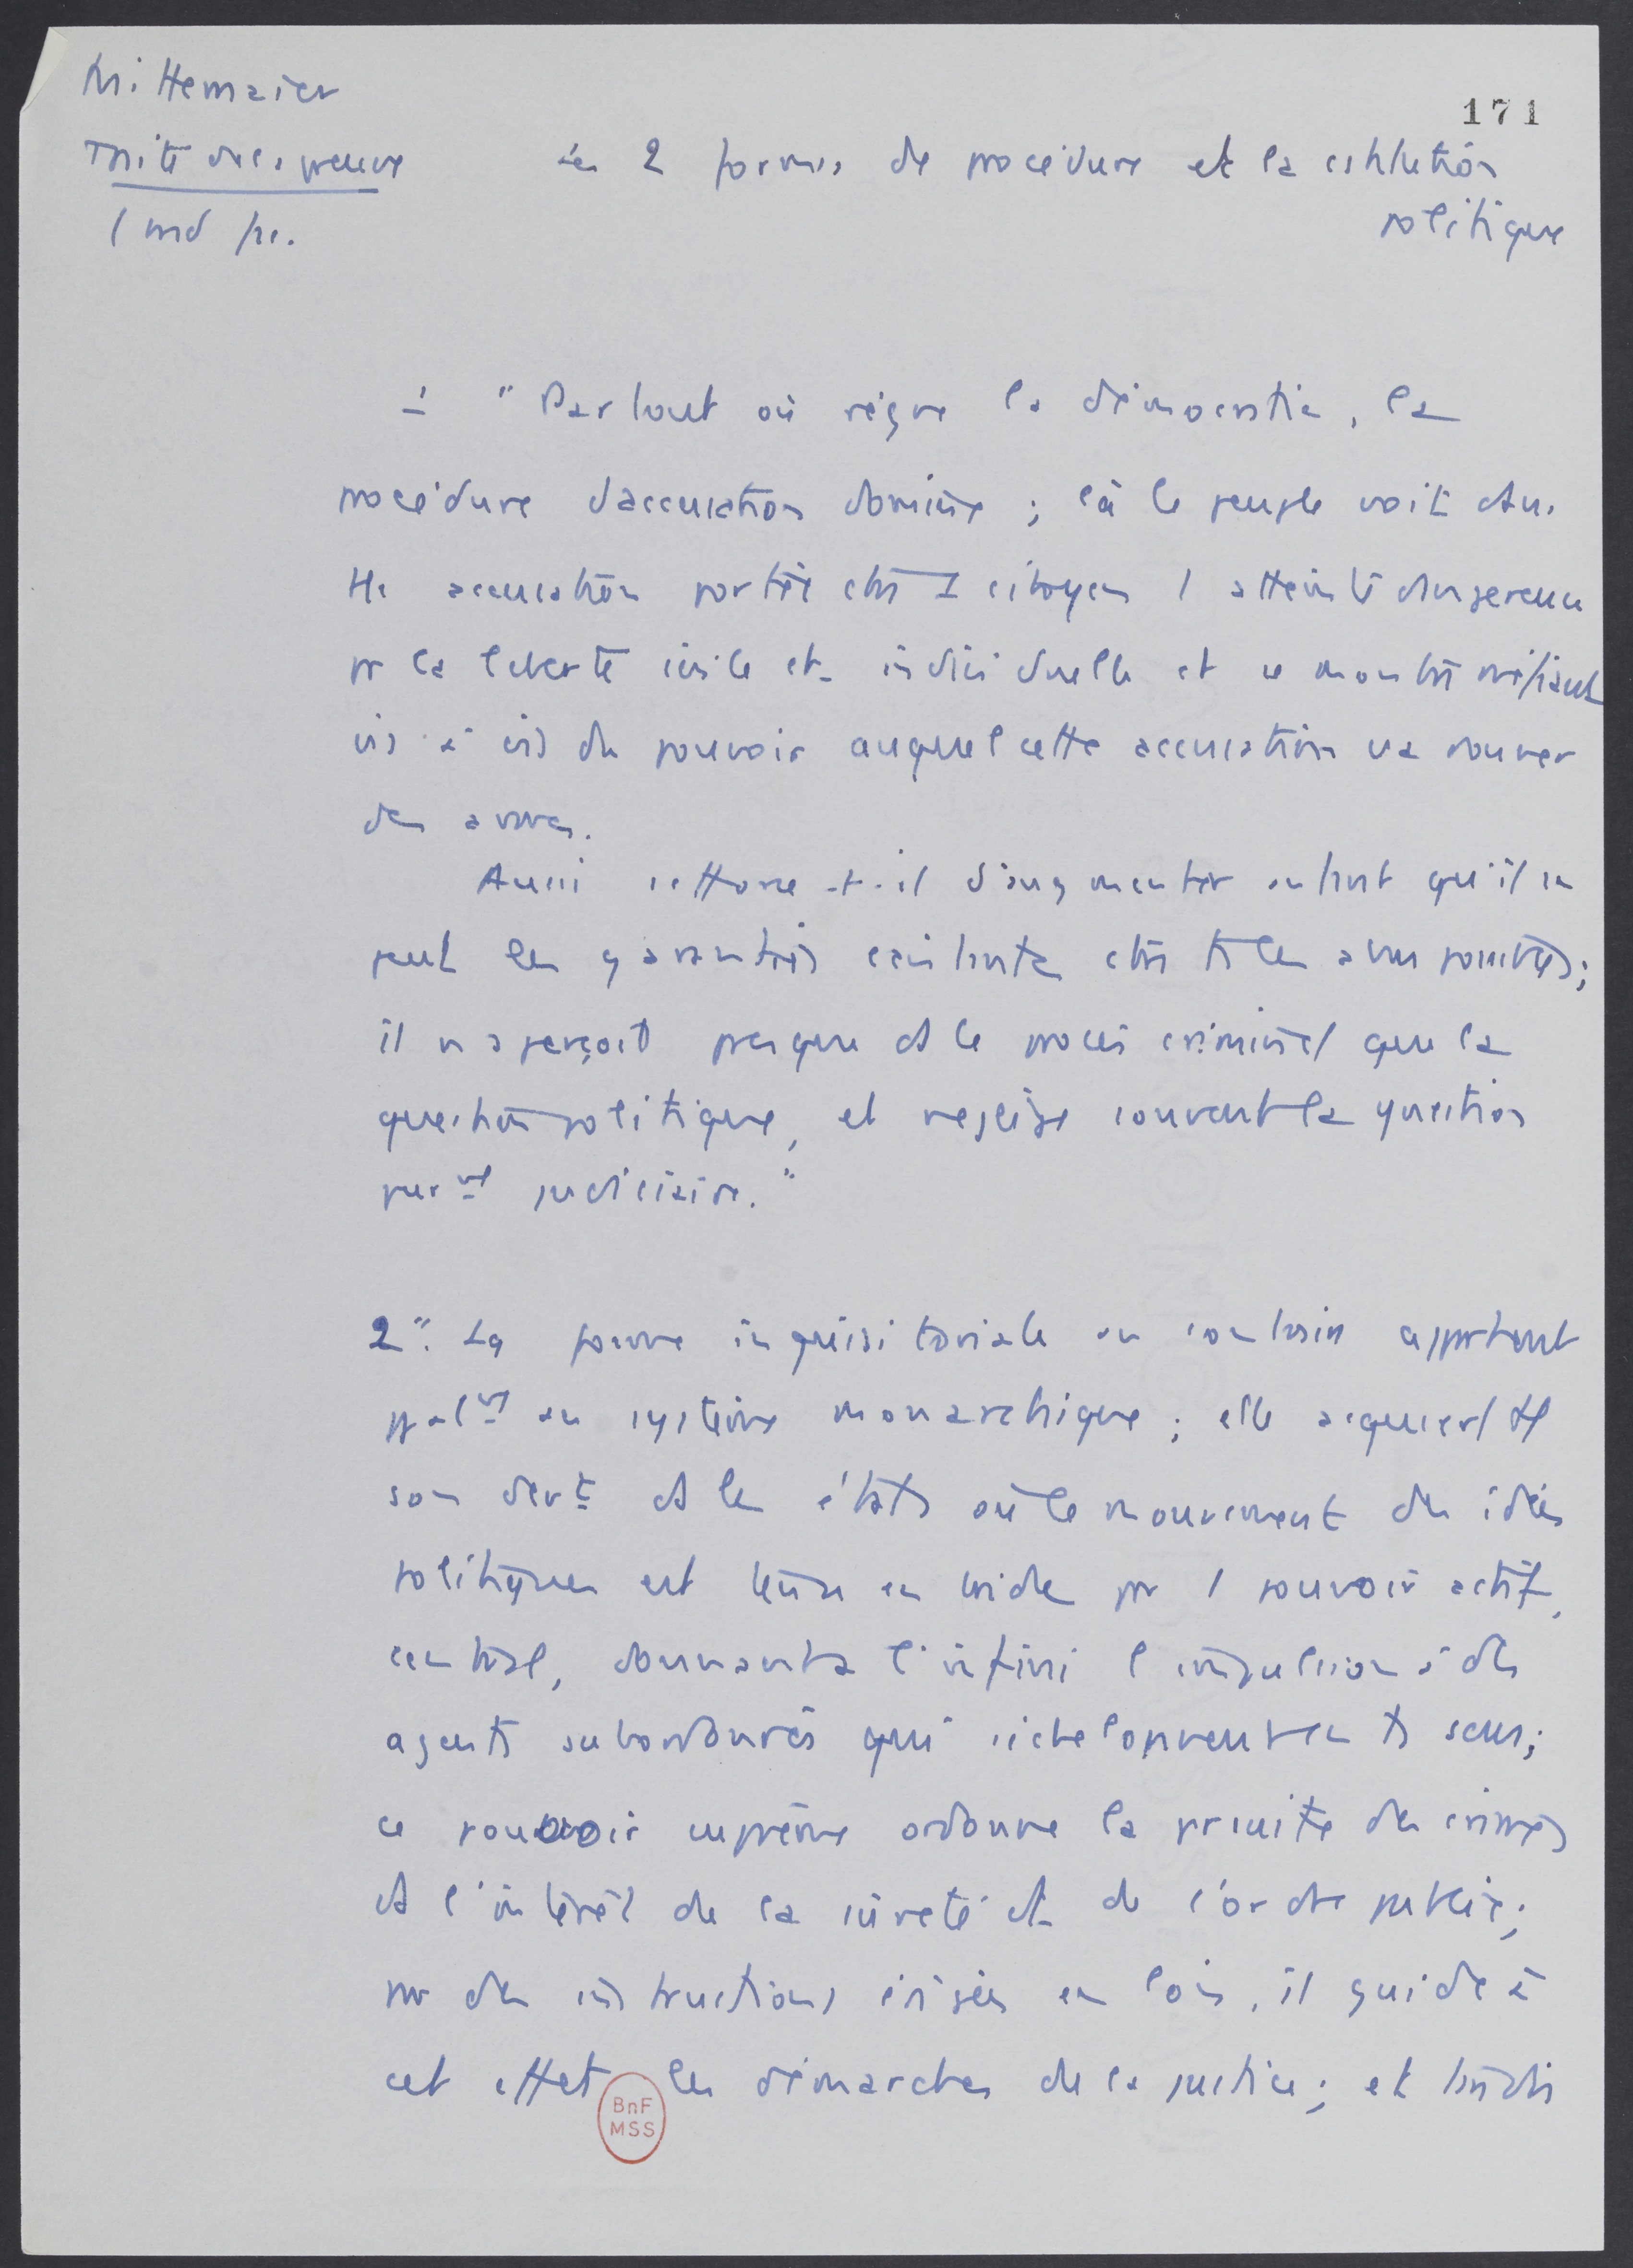 Mittermaier
171
Traité de la preuve
Les 2 formes de procédure et la cstitution
politique
1 "Partout où règne la démocratie, la
procédure d'accusation domine ; là le peuple voit ds
tte accusation portée ctre 1 citoyen 1 atteinte dangereuse
pr la liberté civile et individuelle et se montre méfiant
vis à vis du pouvoir auquel cette accusation va donner
des armes.
Aussi s'efforce-t-il d'augmenter autant qu'il se
peut les garanties existantes ctre ts les abus possibles ;
il n'aperçoit presque ds le procès criminel que la
question politique, et néglige souvent la question
purmt judiciaire."
2". La forme inquisitoriale au contraire appartient
ppalmt au système monarchique ; elle acquiert tt
son devt ds les états où le mouvement des idées
politiques est tenu en bride pr 1 pouvoir actif,
central, donnant à l'infini l'impulsion à des
agents subordonnés qui s'échelonnent en ts sens ;
ce pouvoir suprême ordonne la prsuite des crimes
ds l'intérêt de la sûreté et de l'ordre public ;
pr des instructions érigées en lois, il guide à
cet effet les démarches de la justice ; et tandis
BnF
MSS